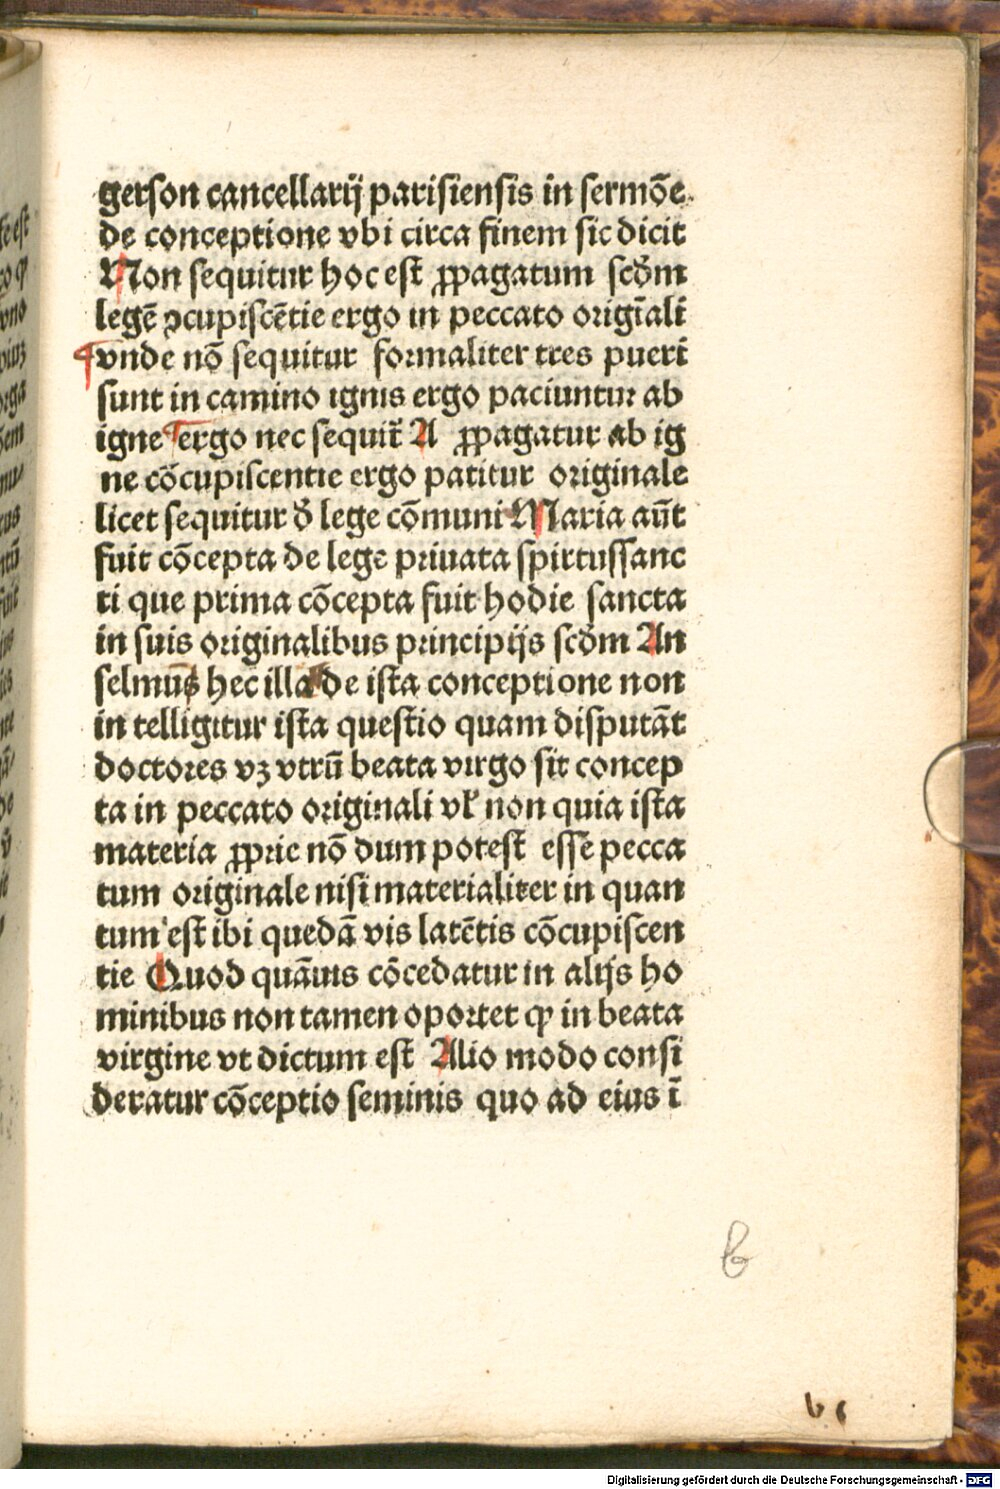 gerson cancellarij parisiensis in sermõe
de conceptione vbi circa finem sic dicit
Non sequitur hoc est ꝓpagatum scd̃m
legẽ ꝯcupiscẽtie ergo in peccato origĩali
vnde nõ sequitur formaliter tres pueri
sunt in camino ignis ergo paciuntur ab
igne ergo nec sequit̃ A ꝓpagatur ab ig
ne cõcupiscentie ergo patitur originale
licet sequitur d̃ lege cõmuni Maria aũt
fuit cõcepta de lege priuata spirtussanc
ti que prima cõcepta fuit hodie sancta
in suis originalibus principijs scd̃m An
selmũ hec illa de ista conceptione non
in telligitur ista questio quam disputãt
doctores vꝫ vtrũ beata virgo sit concep
ta in peccato originali vl̃ non quia ista
materia ꝓprie nõ dum potest esse pecca
tum originale nisi materialiter in quan
tum est ibi quedã vis latẽtis cõcupiscen
tie Quod quãuis cõcedatur in alijs ho
minibus non tamen oportet ꝙ in beata
virgine vt dictum est Alio modo consi
deratur cõceptio seminis quo ad eius ĩ
b
b
Digitalisierung gefördert durch die Deutsche Forschungsgemeinschaft - DFG